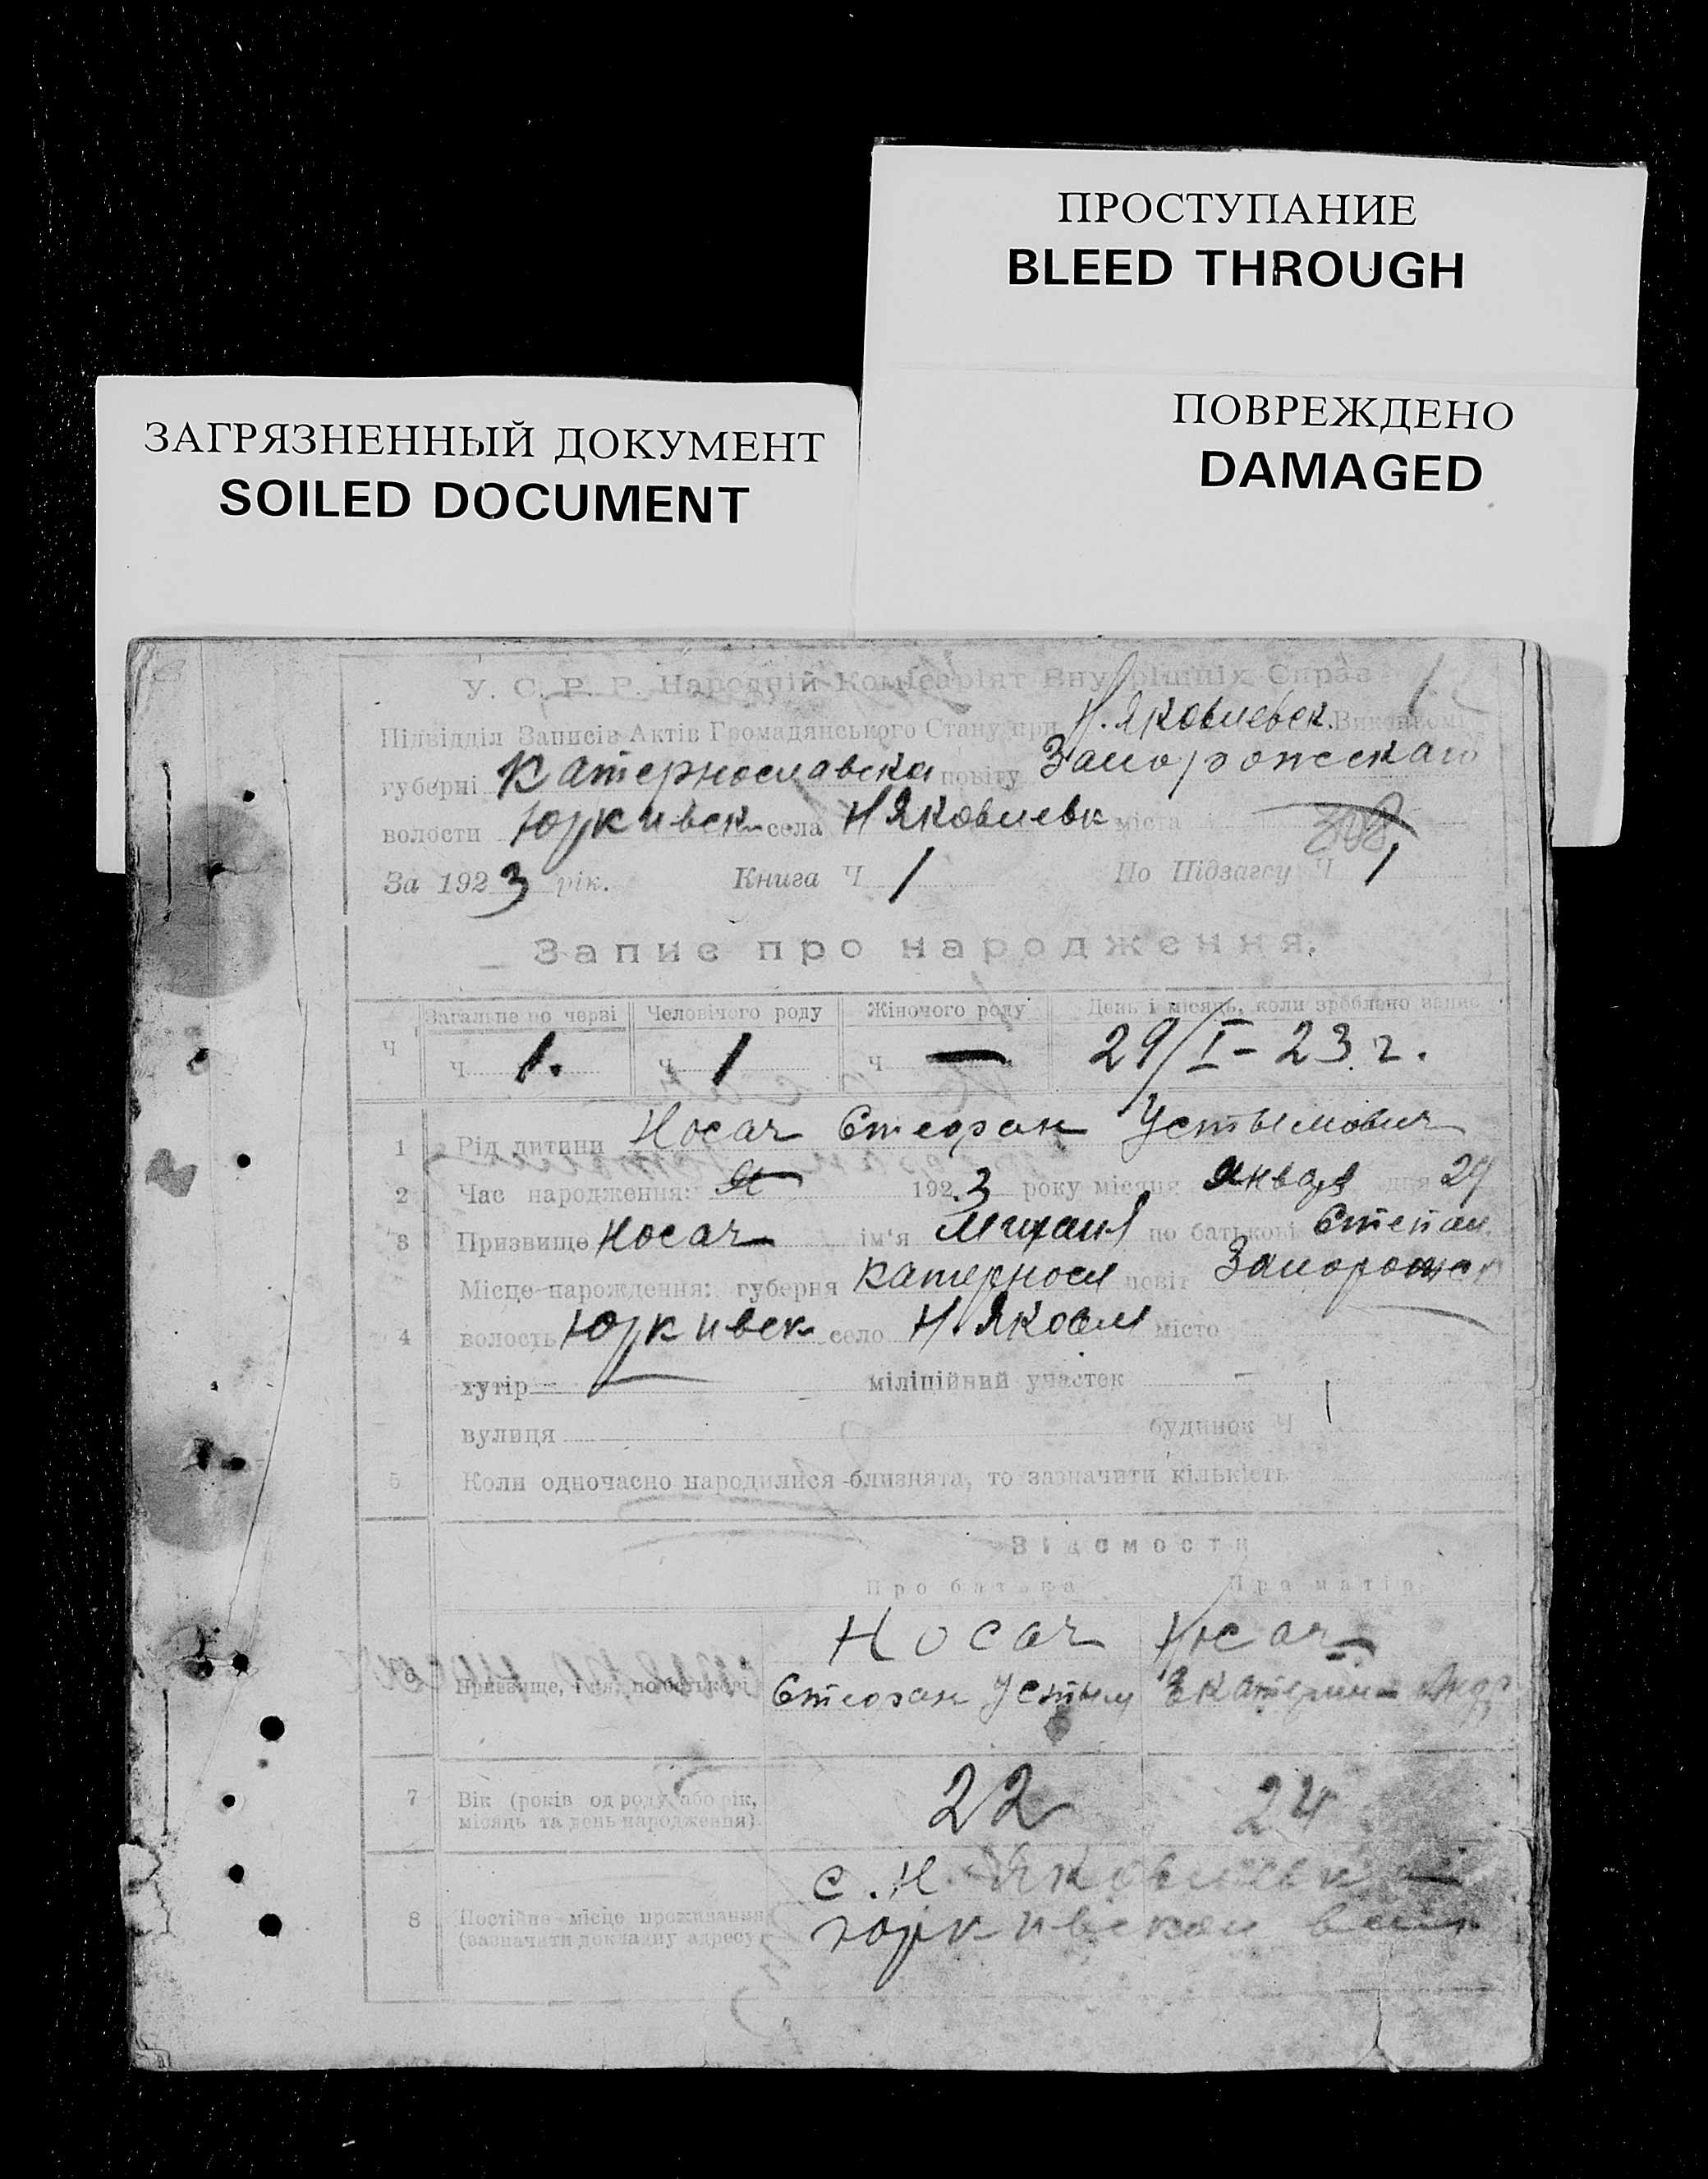 ПРОСТУПАНИЕ
BLEED THROUGH
ПОВРЕЖДЕНО
DAMAGED
ЗАГРЯЗНЕННЫЙ ДОКУМЕНТ
SOILED DOCUMENT
У. С. Р. Р. Народній Комісаріят Внутрішніх Справ
Підвідділ Записів Актів Громадянського Стану при Н. Яковлевск. Виконкомі
губерні Катеринославска повіту Запорожскаго
волости Юркивск села Н Яковлевк міста
За 1923 рік. Книга Ч 1 По Підзагсу Ч 1
Запис про народження.
Ч Загальне по черзі Человічого роду Жіночого роду День і місяць, коли зроблено запис
Ч 1. Ч 1 Ч — 29/I - 23 г.
1 Рід дитини Носач Стефан Устымович
2 Час народження: 1923 року місяця Января дня 29
3 Призвище Носач ім'я Михаил по батькові Степан.
Місце народження: губерня Катериносл повіт Запорожск
4 волость Юркивск село Н. Яковл місто
хутір — міліційний участек -
вулиця будинок Ч
5 Коли одночасно народилися близнята, то зазначити кількість
Відомости
Про батька Про матір
Носач Носач
6 Призвище, ім'я, по батькові Стефан Устым Екатерина Андр
7 Вік (років од роду або рік, місяць та день народження) 22 24
8 Постійне місце проживання (зазначити докладну адресу) с. Н. Яковлевк
Юркивской вол